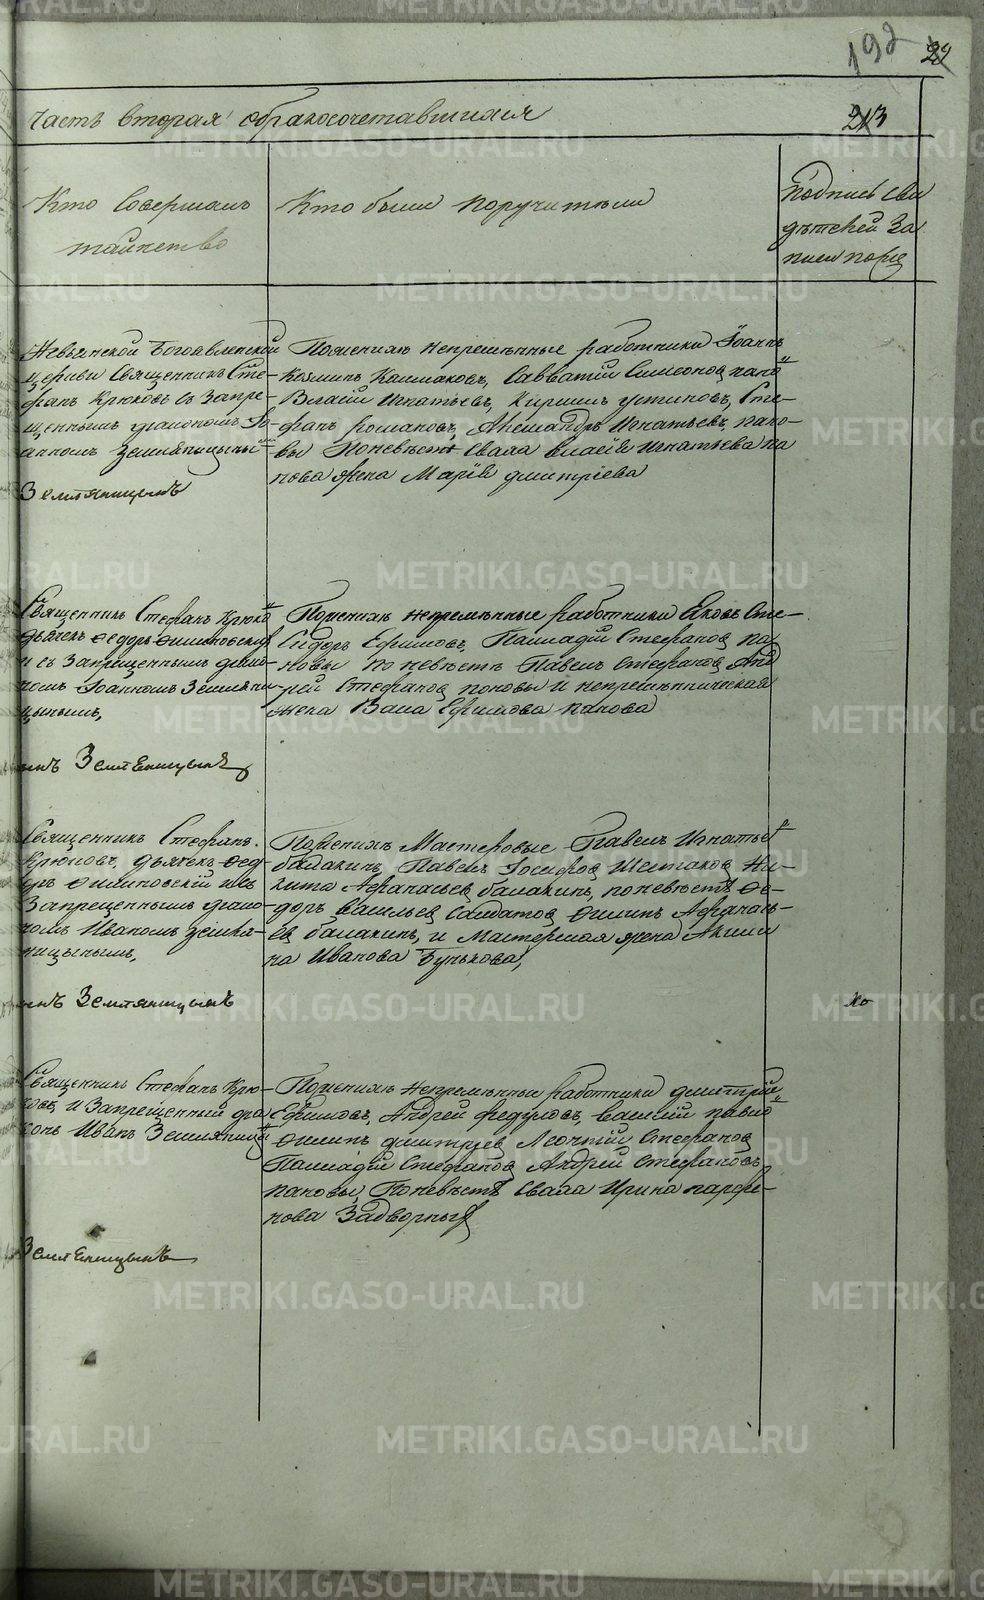 192
Часть вторая о бракосочетавшихся
213
Кто Совершалъ
таинство
Кто были поручители
Подпись сви
дѣтелей За
писи по же
Невьянской Богоявленской
церкви Священникъ Сте-
фанъ Крюковъ съ Запре-
щеннымъ диакономъ Iо-
анномъ Земляницынымъ
Земляницынъ
По женихѣ непремѣнные работники Iоаннъ
Козминъ Колмаковъ, Савватiй Симеоновъ пано
Власiй Игнатьевъ, Кирилъ Устиновъ, Сте-
фанъ Романовъ, Александръ Игнатьевъ, пано-
вы По невѣстѣ Сваха Власiя Игнатьева па
нова жена Марiя Дмитрiева
Священникъ Стефанъ Крюко
дьячекъ Ѳедоръ Филиповскiй
и съ Запрещеннымъ диако-
номъ Iоанномъ Земляни-
цынымъ,
Земляницынъ
По женихѣ непремѣнные работники Яковъ Сте-
Сидоръ Ефимовъ, Палладiй Стефановъ па-
новы по невѣстѣ Павелъ Стефановъ Анд
рей Стефановъ пановы и непремѣнническая
жена Васса Ефимова панова
Священникъ Стефанъ
Крюковъ, дьячекъ Ѳед-
оръ Филиповскiй и съ
Запрещеннымъ диако-
номъ Иваномъ Земля-
ницынымъ,
Земляницынъ
По женихѣ Мастеровые Павелъ Игнатье
балакинъ, Павелъ Iосифовъ Шестаковъ Ни-
кита Афанасьевъ балакинъ, по невѣстѣ Ѳе-
доръ Васильевъ Салдатовъ Филипъ Афанась-
евъ балакинъ, и Мастерская жена Акили
на Иванова Бунькова,
Священникъ Стефанъ Крю-
ковъ и Запрещенный дiа
конъ Иванъ Земляницы
Земляницынъ
По женихѣ непремѣнные работники Дмитрiй
Ефимовъ, Андрей Федуловъ, Василiй
Филипъ Дмитрiев Леонтiй Стефановъ
Палладiй Стефановъ Андрей Стефановъ
пановы, По невѣстѣ Сваха Ирина парфе-
нова Задворныхъ
METRIKI.GASO-URAL.RU